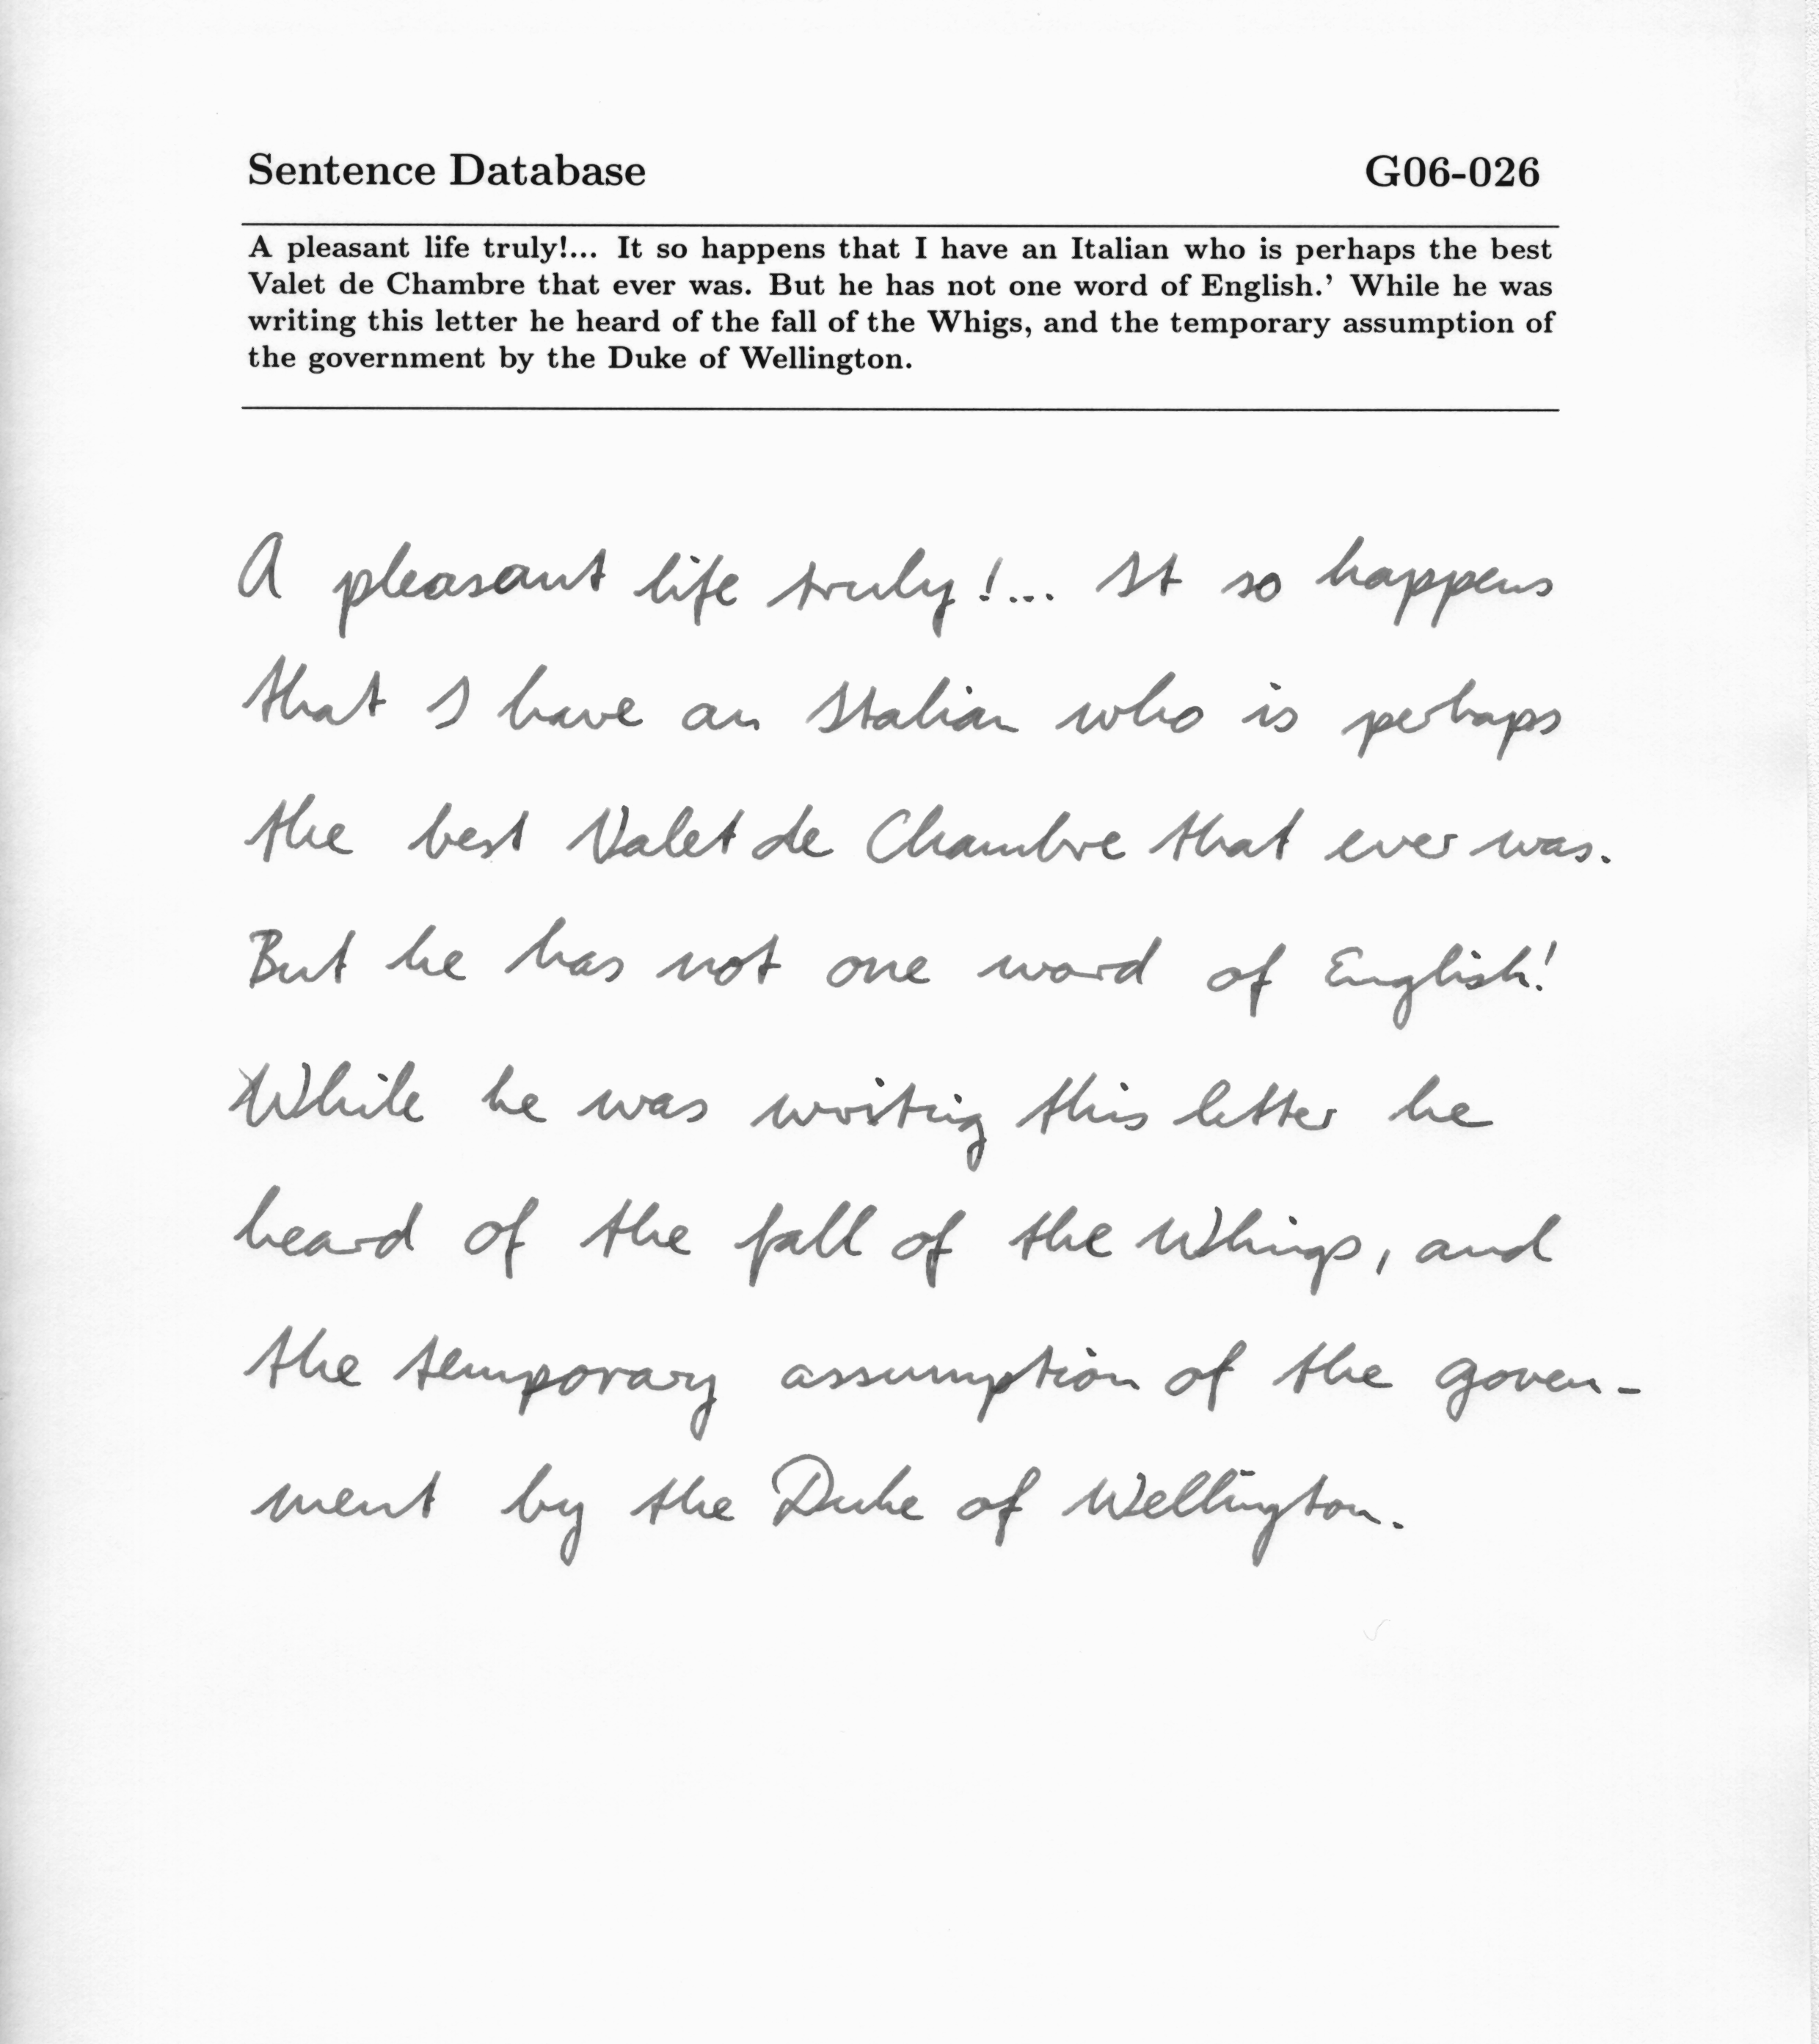 Sentence Database G06-026
A pleasant life truly!... It so happens that I have an Italian who is perhaps the best
Valet de Chambre that ever was. But he has not one word of English.' While he was
writing this letter he heard of the fall of the Whigs, and the temporary assumption of
the government by the Duke of Wellington.
A pleasant life truly!... It so happens
that I have an Italian who is perhaps
the best Valet de Chambre that ever was.
But he has not one word of English!
While he was writig this letter he
heard of the fall of the Whings, and
the temporary assumption of the goven-
ment by the Duke of Wellington.